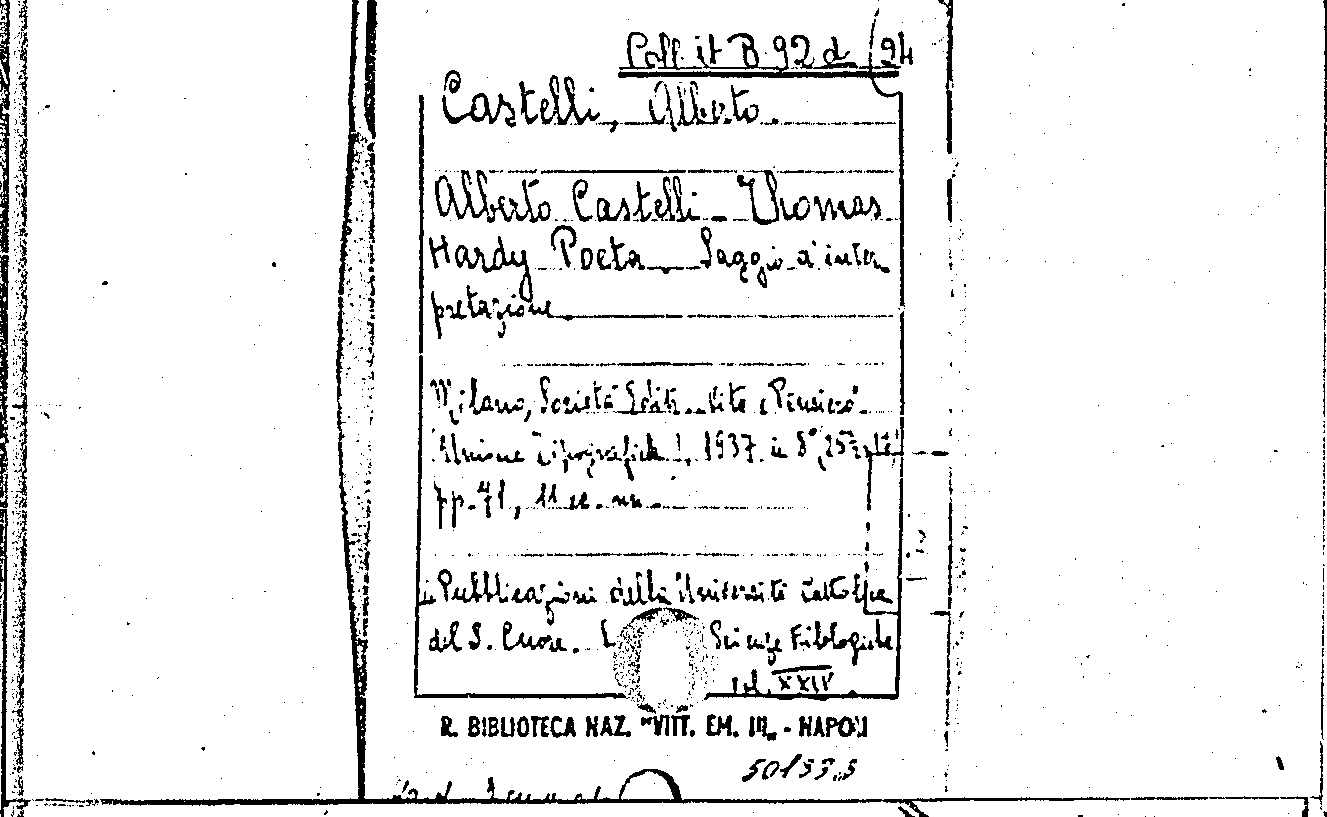 Coll. it B 92 d (24
Castelli, Alberto.
Alberto Castelli - Thomas
Hardy Poeta. Saggio d'inter
pretazione.
Milano, Società Edit. Vita e Pensiero
Unione Tipografica 1937 in 8°, 25
pp. 71, 11 cc. nn.
in Pubblicazioni della Università Cattolica
del S. Cuore. Scienze Filologiche
vol. XXIV.
R. BIBLIOTECA NAZ. "VITT. EM. III„ - NAPOLI